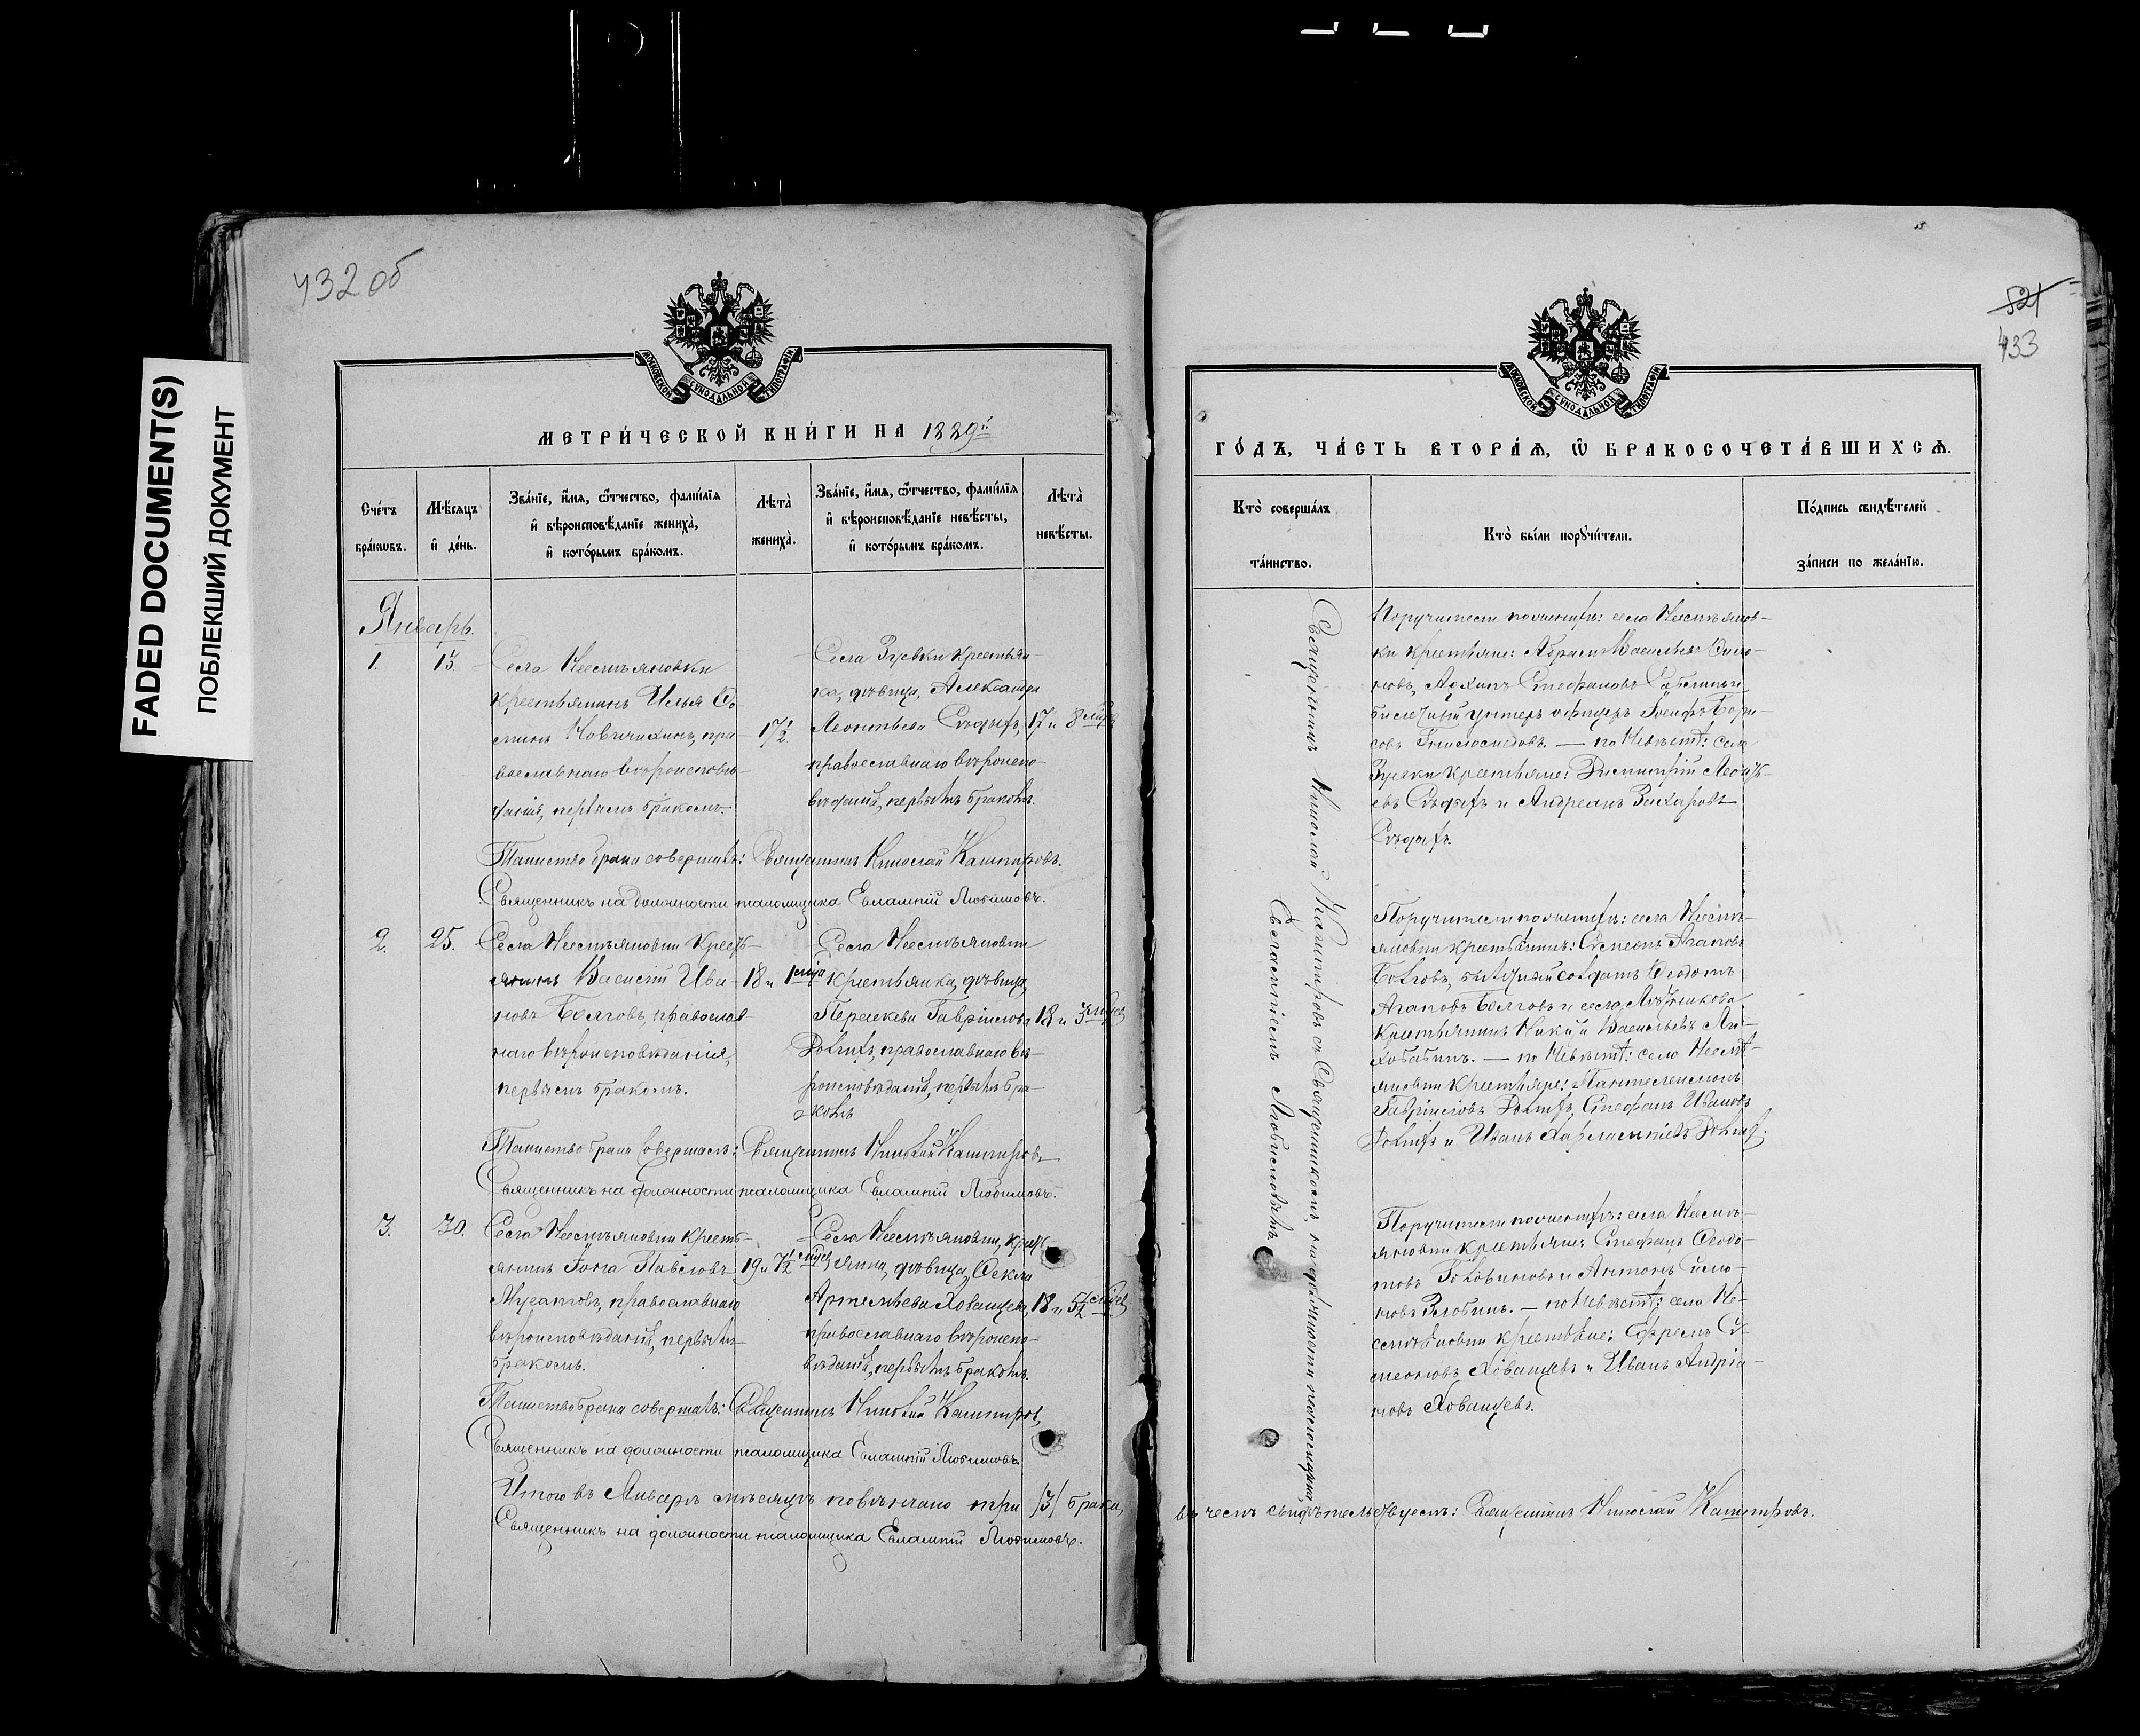 432 об
521
433
FADED DOCUMENT(S)
ПОБЛЕКШИЙ ДОКУМЕНТ
МОСКОВСКОЙ СѴНОДАЛЬНОЙ ТИПОГРАФІИ
МЕТРИ́ЧЕСКОЙ КНИ́ГИ НА 1889й
Сче́тъ бра́кѡвъ.
Мѣ́сяцъ и҆ де́нь.
Зва́нїе, и҆́мя, ѻ҆́тчество, фами́лїя
и҆ вѣроисповѣ́данїе жениха̀,
и҆ кото́рымъ бра́комъ.
Лѣта̀ жениха̀.
Зва́нїе, и҆́мя, ѻ҆́тчество, фами́лїя
и҆ вѣроисповѣ́данїе невѣ́сты,
и҆ кото́рымъ бра́комъ.
Лѣта̀ невѣ́сты.
Январь.
1. 13.
Села Несмѣяновки
крестьянинъ Илья Ѳо-
минъ Новичихинъ, пра-
вославнаго вѣроисповѣ-
данія, первымъ бракомъ.
17½.
Села Зуевки крестьян-
ка, дѣвица, Александра
Леонтьева Сѣдыхъ,
православнаго вѣроиспо-
вѣданія, первымъ бракомъ.
17 и 8 мѣсц
Таинство брака совершалъ: Священникъ Николай Каштыровъ.
Священникъ на должности псаломщика Евлампій Любимовъ.
2. 25.
Села Несмѣяновки Кресть-
янинъ Василій Ива-
новъ Болговъ, православ-
наго вѣроисповѣданія,
первымъ бракомъ.
18 и 1 мсца
Села Несмѣяновки
крестьянка, дѣвица
Параскева Гавріилова
православнаго вѣ-
роисповѣданія, первымъ бра-
комъ
18 и 3 мсцев
Таинство брака совершалъ: Священникъ Николай Каштыровъ
Священникъ на должности псаломщика Евлампій Любимовъ.
3. 30.
Села Несмѣяновки кресть-
янинъ Іона Павловъ
Мусатовъ, православнаго
вѣроисповѣданія, первымъ
бракомъ.
19 и 7½ мсцев
Села Несмѣяновки, кресть-
янка, дѣвица, Ѳекла
Артемьева Хованцева,
православнаго вѣроиспо-
вѣданія, первымъ бракомъ.
18 и 5½ мсцев
Таинство брака совершалъ: Священникъ Николай Каштыровъ
Священникъ на должности псаломщика Евлампій Любимовъ.
Итого въ Январѣ мѣсяцѣ повѣнчано три /3/ брака,
Священникъ на должности псаломщика Евлампій Любимовъ.
ГО́ДЪ, ЧА́СТЬ ВТОРА́Я, Ѡ҆ БРАКОСОЧЕТА́ВШИХСЯ.
Кто̀ соверша́лъ
та́инство.
Кто̀ бы́ли порꙋчи́тели.
По́дпись свидѣ́телей
за́писи по жела́нїю.
Священникъ Николай Каштыровъ съ Священникомъ, на должности псаломщика,
Евлампіемъ Любимовымъ.
Поручители по женихѣ: села Несмѣянов-
ки крестьяне: Абрамъ Васильевъ
Архипъ Стефановъ
унтеръ офицеръ Іосифъ Бори-
совъ — по невѣстѣ: села
Зуевки крестьяне: Димитрій Леонть-
евъ Сѣдыхъ и Андреанъ Захаровъ
Сѣдыхъ.
Поручители по женихѣ: села Несмѣ-
яновки крестьянинъ: Симеонъ Агаповъ
Болговъ, солдатъ Ѳеодотъ
Агаповъ Болговъ и села
крестьянинъ Василь
— по невѣстѣ: села Несмѣ-
яновки крестьяне: Пантелеимонъ
Гавріиловъ Стефанъ Ивановъ
и Иванъ
Поручители по женихѣ: села Несмѣ-
яновки крестьяне: Стефанъ Ѳеодо-
товъ Головиновъ и Антонъ Симо-
новъ Злобинъ. — по невѣстѣ: села Не-
смѣяновки крестьяне: Ефремъ Си-
меоновъ Хованцевъ и Иванъ Андріа-
новъ Хованцевъ.
въ чемъ свидѣтельствуемъ: Священникъ Николай Каштыровъ.